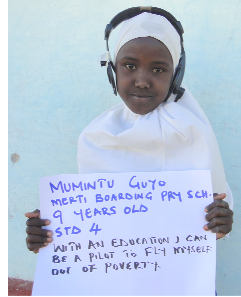 MUMINTU GUYO
MERTI BOARDING PRY SCH.
9 YEARS OLD
STD 4
WITH AN EDUCATION I CAN
BE A PILOT TO FLY MYSELF
OUT OF POVERTY.